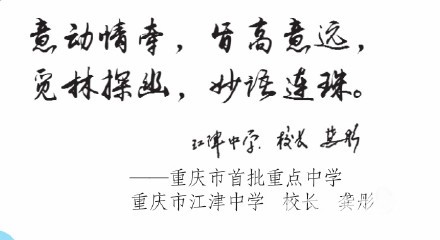 意动情牵，旨高意远，
觅林探幽，妙语连珠。
江津中学 校长 龚彤
——重庆市首批重点中学
重庆市江津中学 校长 龚彤